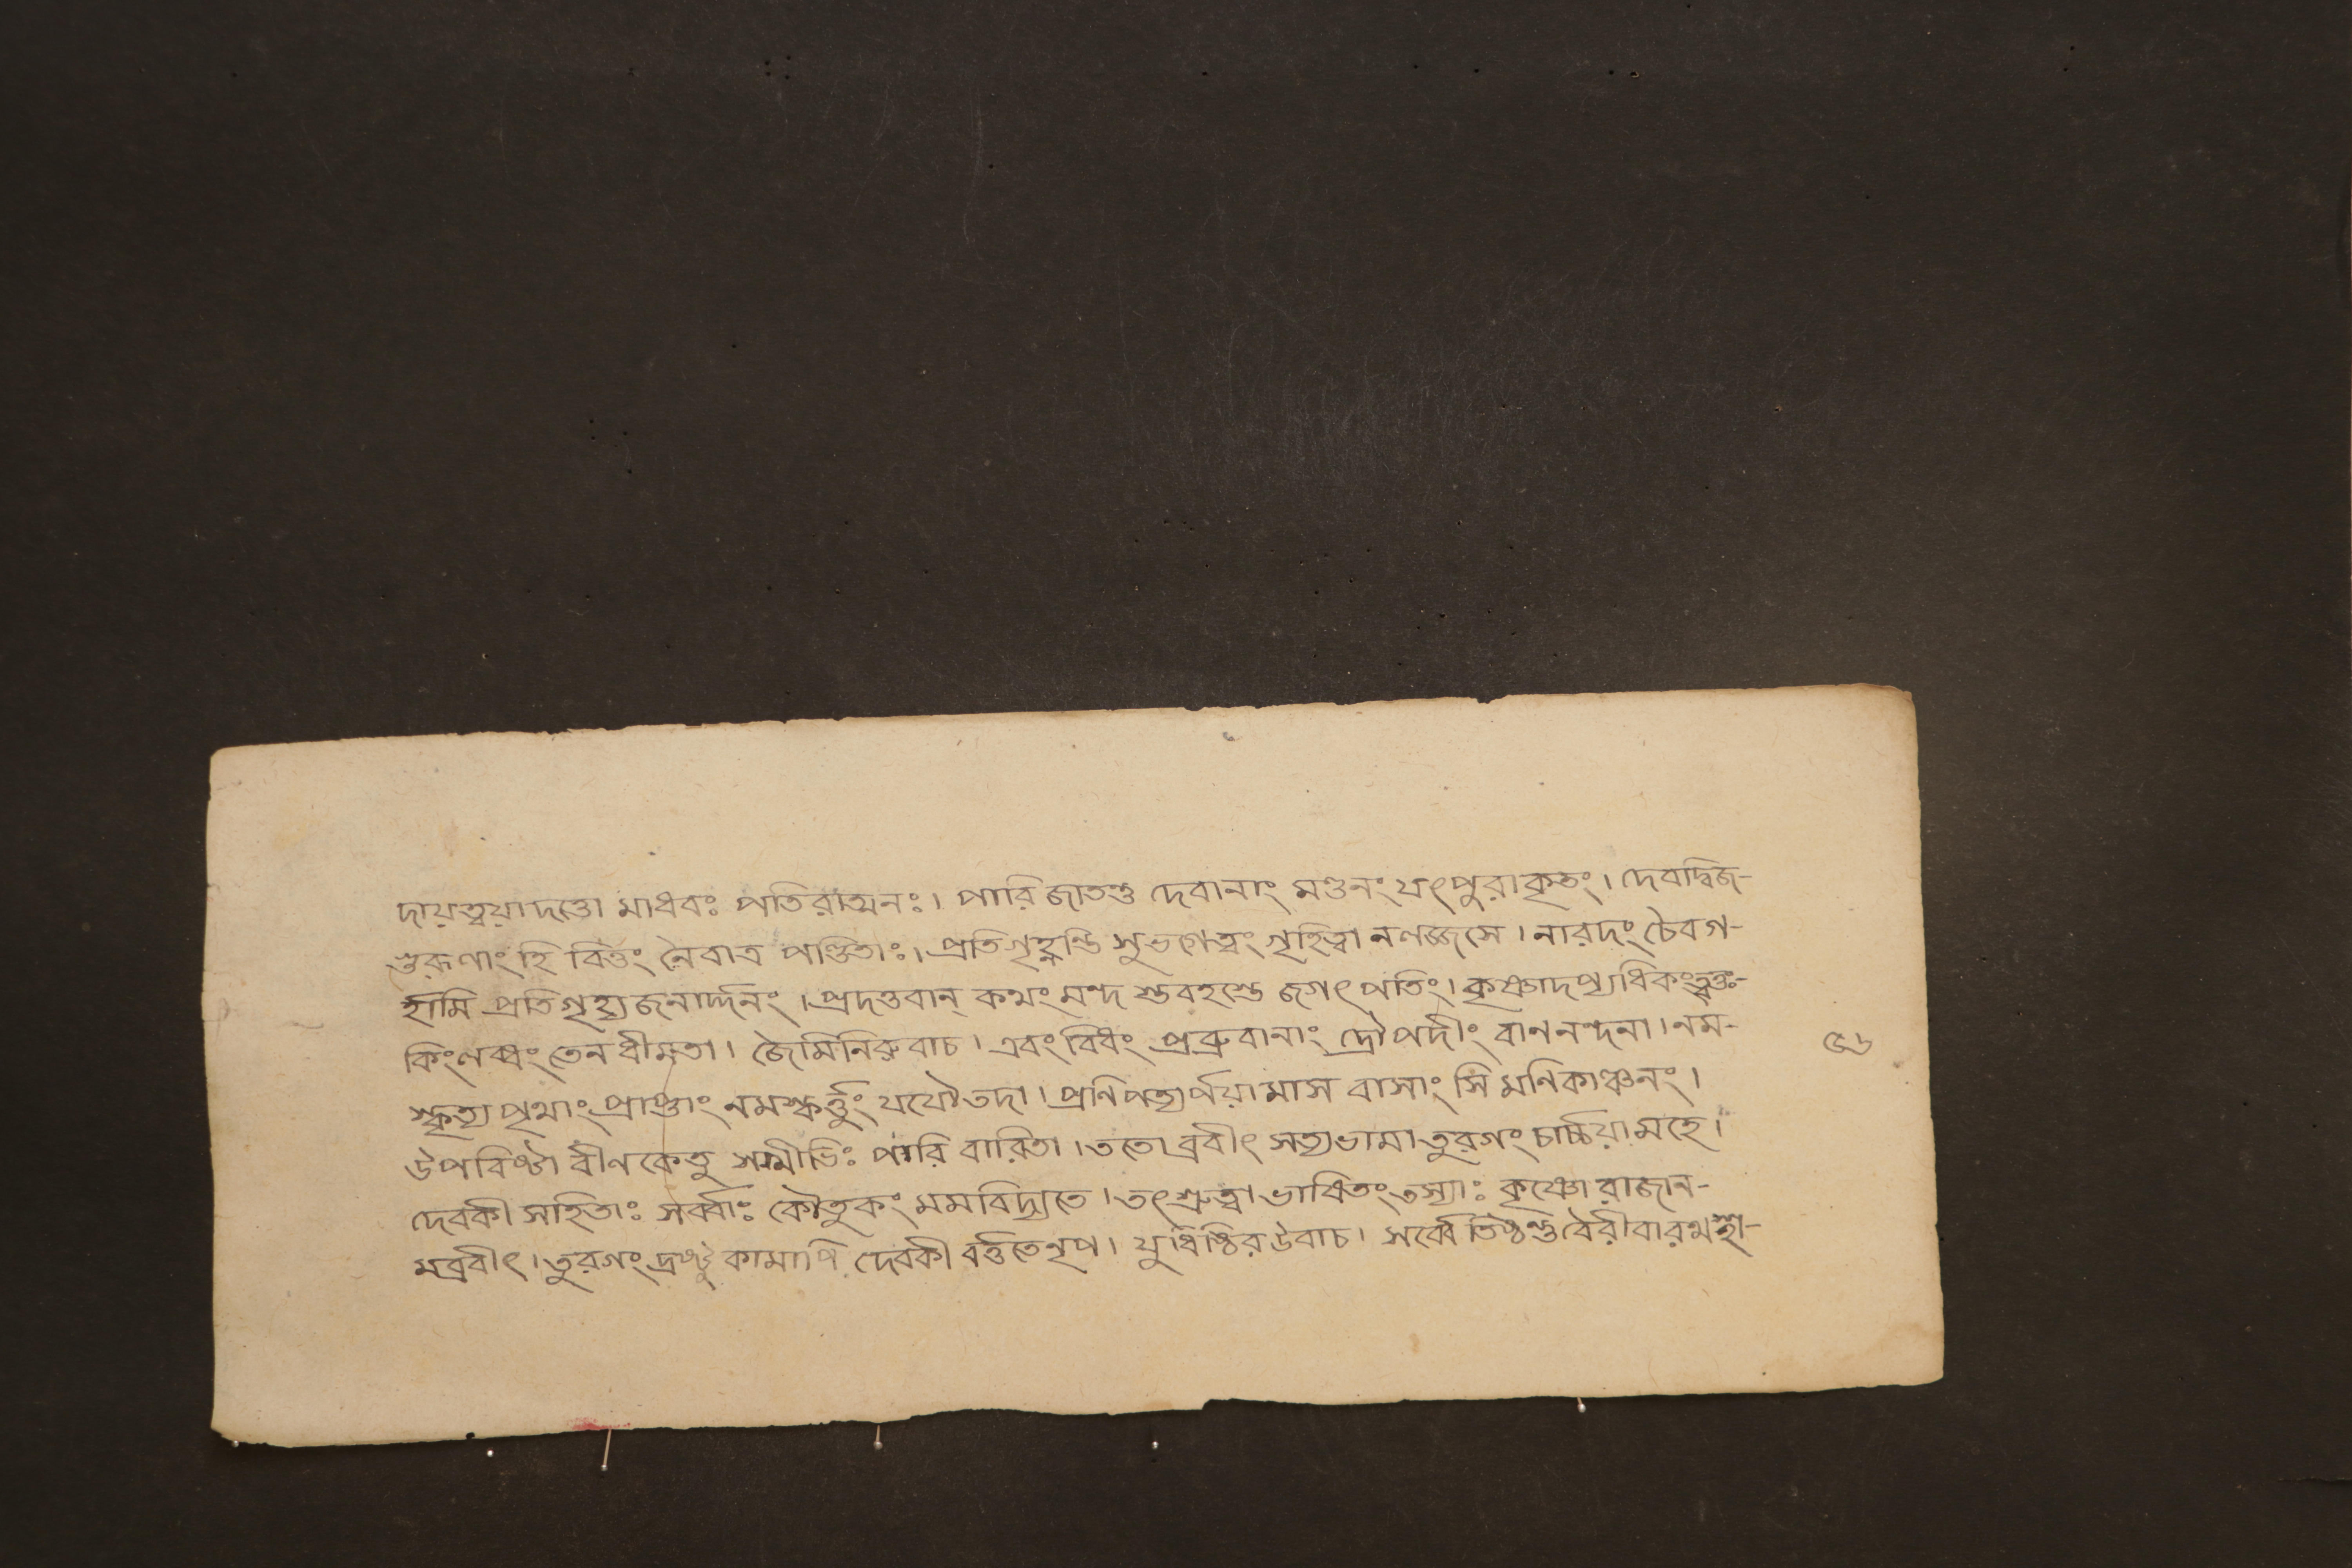 দায়ত্বয়াদত্তো মাধবঃ পতিরাত্মনঃ। পারিজাতস্তু দেবানাং মণ্ডনং যৎপুরাকৃতং। দেবাদ্বিজ-
গুরূণাং হি বিত্তং নৈবাত্র পণ্ডিতাঃ। প্রতিগৃহ্ণন্তি সুভগেত্বং গৃহিত্বা নলজ্জসে। নারদং চৈবগ-
র্হামি প্রতিগৃহ্য জনার্দ্দনং। প্রদত্তবান্ কথং মন্দ স্তবহস্তে জগৎপতিং। কৃষ্ণাদপ্যধিকং
কিংলব্ধং তেন ধীমতা। জৈমিনিরুবাচ। এবং বিধং প্রব্রুবানাং দ্রৌপদীং বাননন্দনা। নম-
স্কৃত্য পৃথাং প্রাপ্তাং নমস্কর্ত্তুং যযৌতদা। প্রণিপত্যার্পয়ামাস বাসাং সি মনিকাঞ্চনং।
উপবিষ্টা বীণকেতু পত্নীভিঃ পরি বারিতা। ততো ব্রবীৎ সত্যভামা তুরগং চার্চ্চয়ামহে।
দেবকী সহিতাঃ সর্ব্বাঃ কৌতুকং মমবিদ্যতে। তৎশ্রুত্বা ভাষিতংতস্যাঃ কৃষ্ণো রাজান-
মব্রবীৎ। তুরগং দ্রষ্টু কামাপি দেবকী বর্ত্ততেনৃপ। যুধিষ্ঠির উবাচ। সর্ব্বে তিষ্ঠন্তু বৈরীবারথ
৫৬